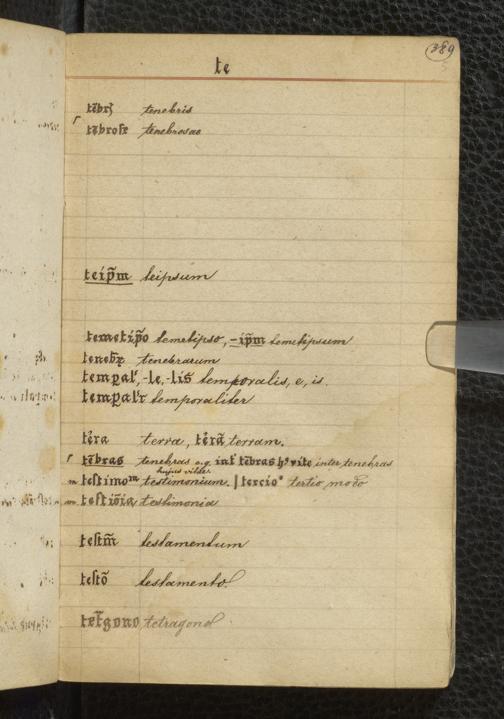 389
te
tēbrꝭ tenebris
r tēbrose tenebrosae
teip̄m teipsum
temetip̄o temetipso, -ip̄m temetipsum
teneb tenebrarum
tempal', -le, -lis temporalis, e, is.
tempalr temporaliter
tēra terra, tērā terram.
r tēbras tenebras e.g. int tēbras hꝰ vite inter tenebras
hujus vitae.
m testimoᵐ testimonium. | tercioº tertio modo
testiōia testimonia
testm̄ testamentum
testō testamento
tetgono tetragono